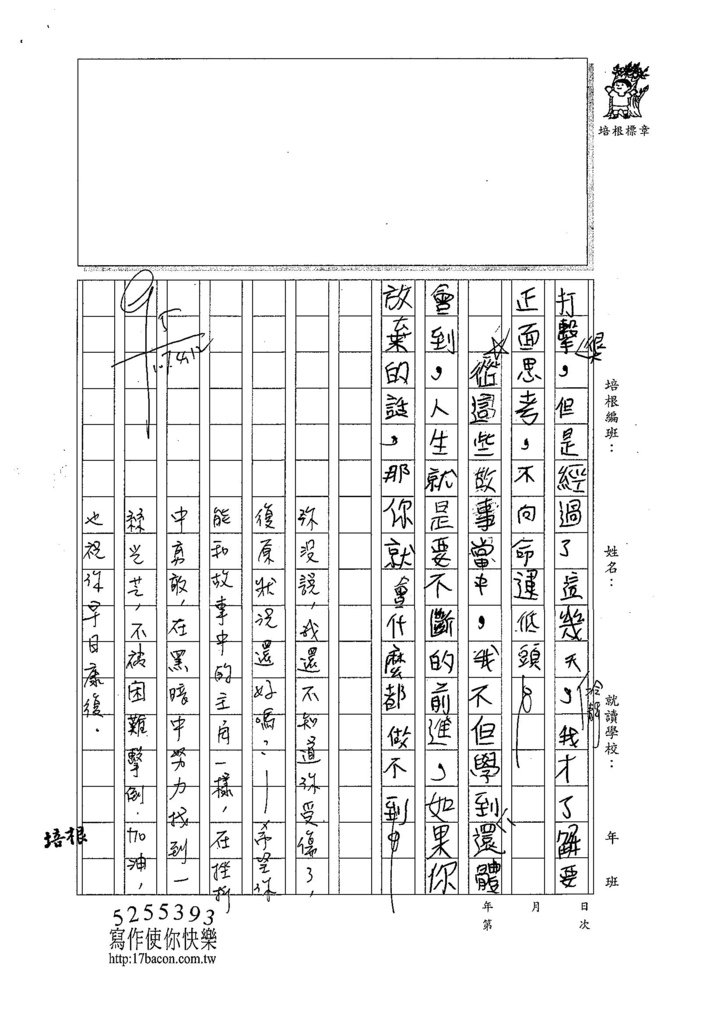 培根標章
培根編班：
姓名：
就讀學校：
年
班
年
月
日
第
次
打擊，但是經過了這幾天，我才了解要
正面思考，不向命運低頭。
從這些故事當中，我不但學到還體
會到，人生就是要不斷的前進，如果你
放棄的話，那你就會什麼都做不到
你沒說，我還不知道你受傷了，
復原狀況還好嗎？——希望你
能和故事中的主角一樣，在挫折
中勇敢，在黑暗中努力找到一
絲光芒，不被困難擊倒.加油，
也祝你早日康復.
95
培根
5255393
寫作使你快樂
http:17bacon.com.tw